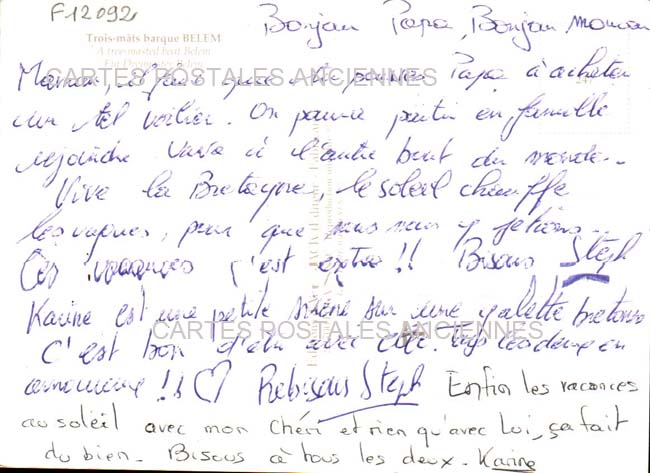 F12092
Bonjour Papa, Bonjour Maman
Trois-mâts barque BELEM
A tree-masted boat Belem
Ein Dreimaster Belem
Maman, il faut que tu pousses Papa à acheter
CARTES POSTALES ANCIENNES
un tel voilier. On pourra partir en famille
rejoindre à l'autre bout du monde..
Vive la Bretagne, le soleil chauffe
les vagues, pour que nous nous y jetions...
Ces vacances c'est extra!! Bisous Steph
Karine est une petite sirène sur une galette bretonne
CARTES POSTALES ANCIENNES
C'est bon d'être avec elle. les deux en
amoureux!! ♡ Rebisous Steph Enfin les vacances
au soleil avec mon Chéri et rien qu'avec Lui, ça fait
du bien. Bisous à tous les deux. Karine